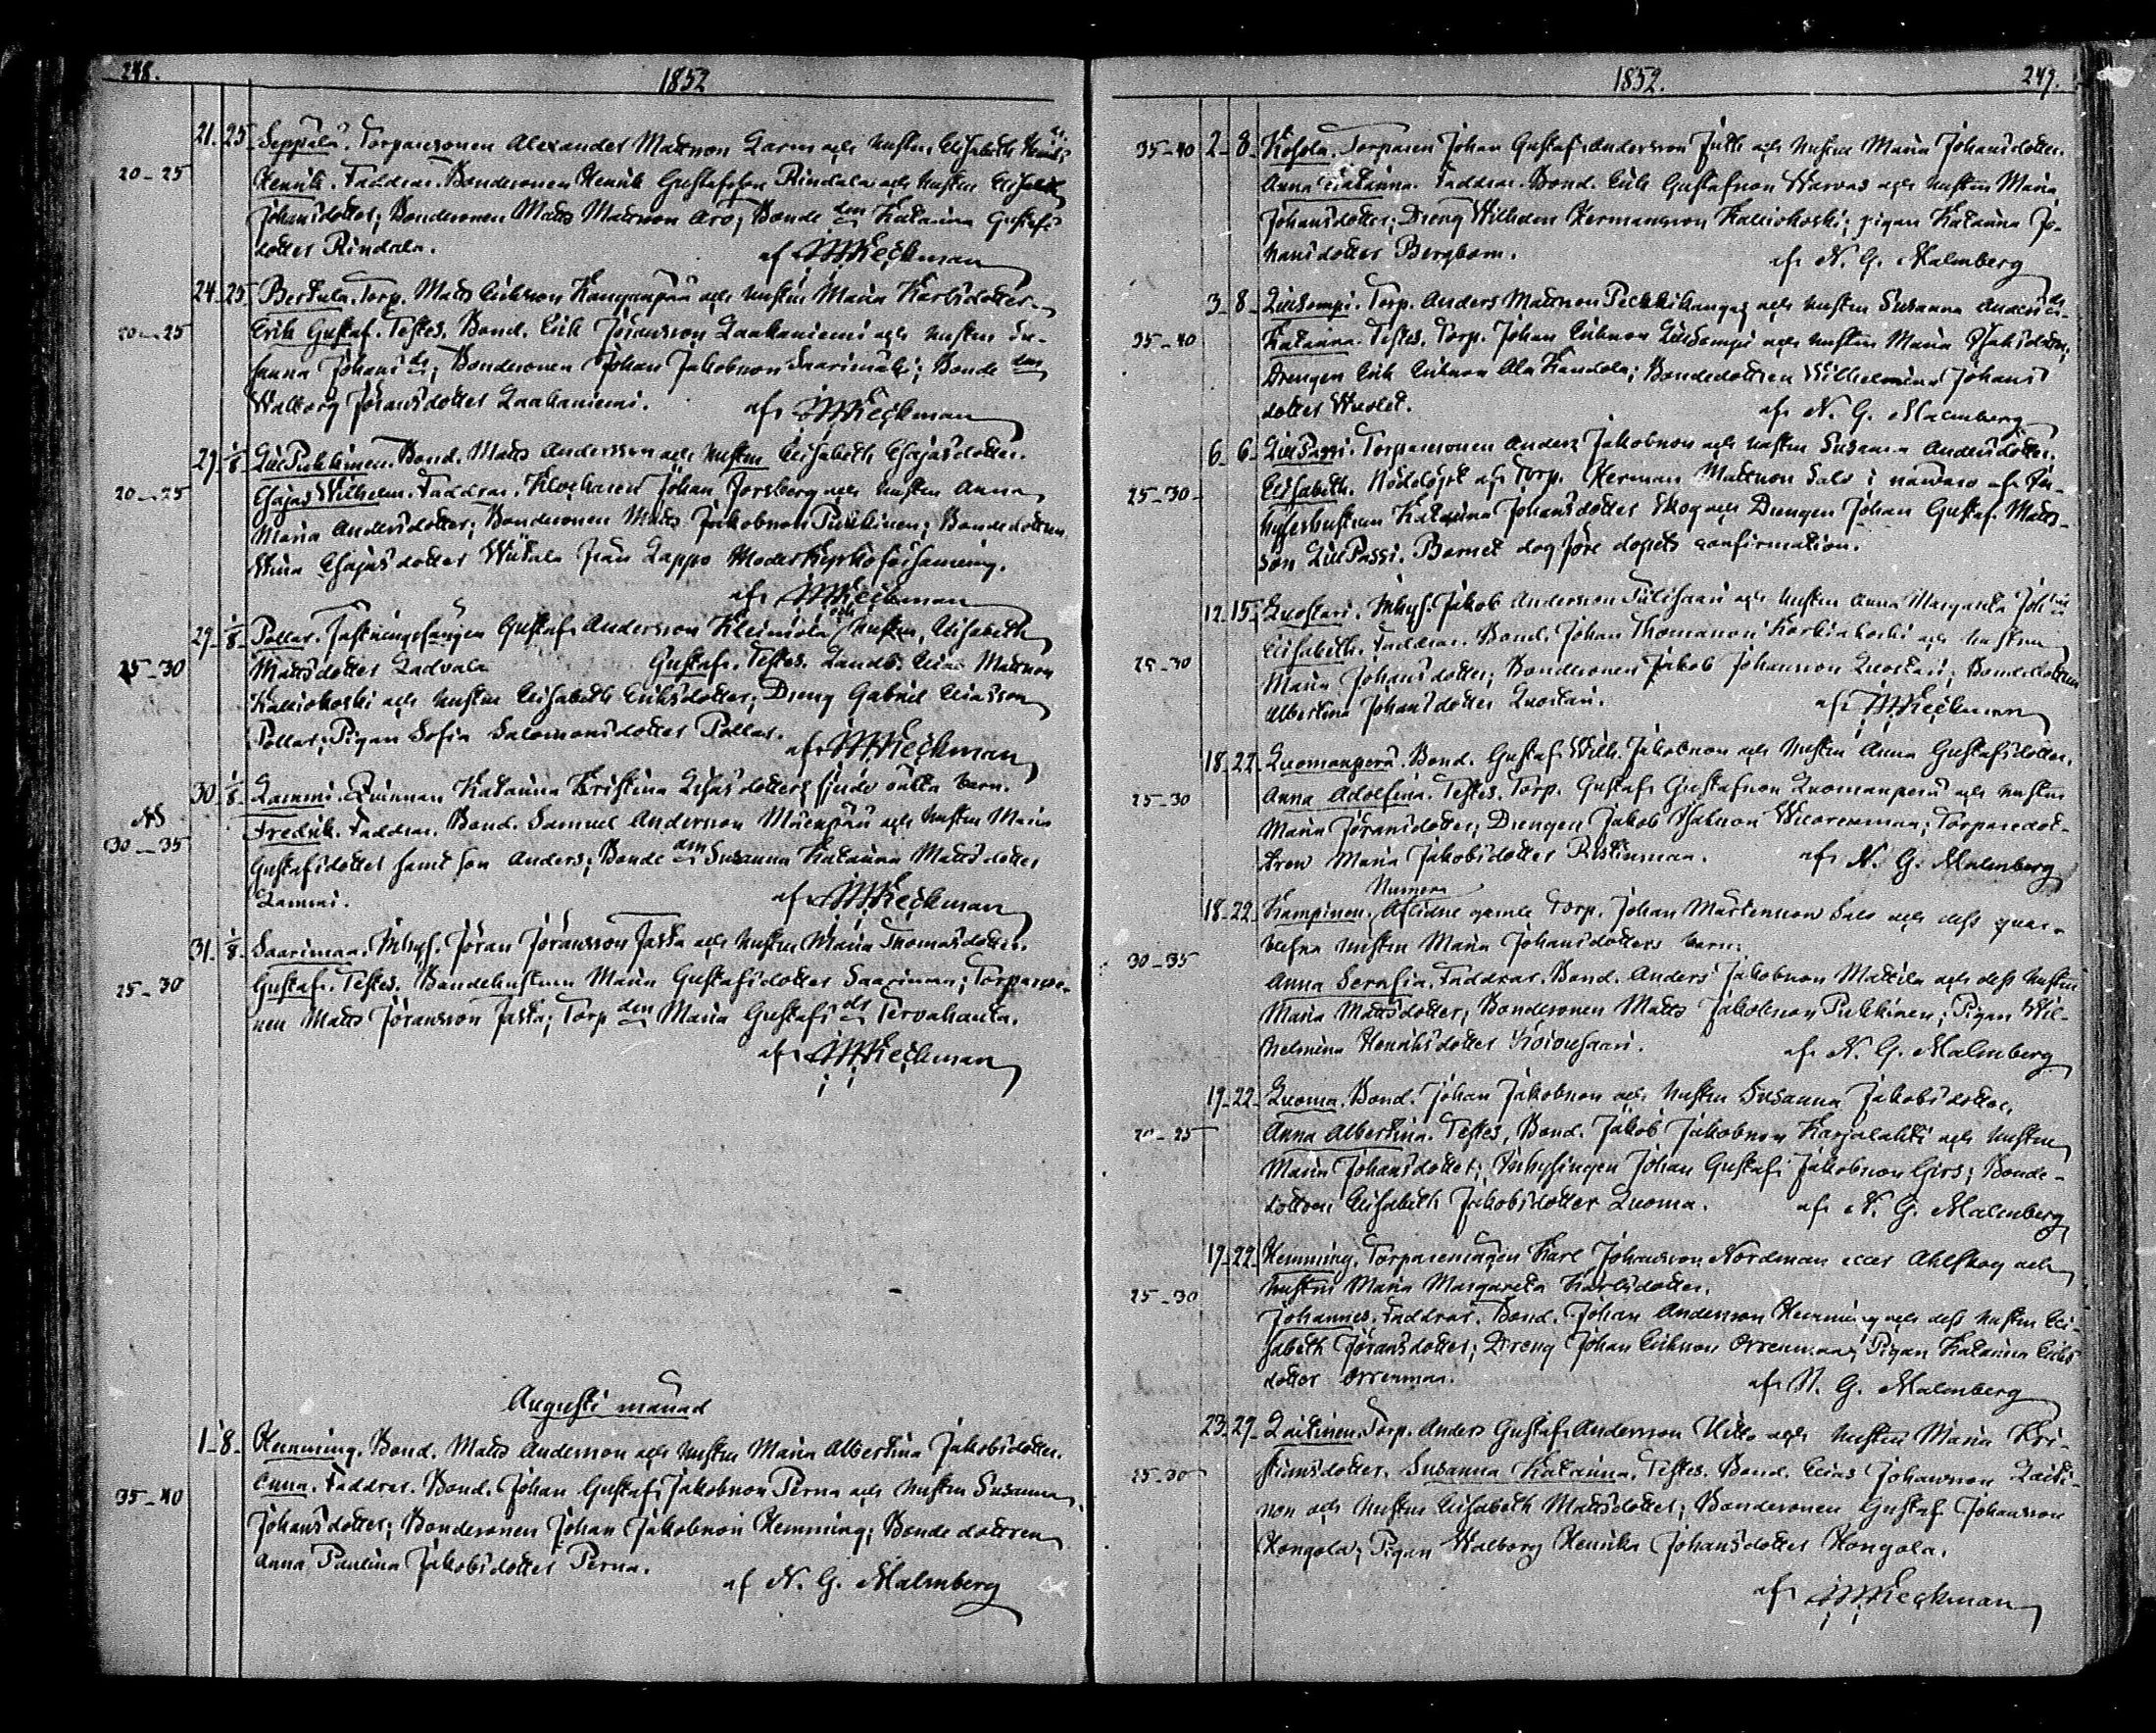 248.
1852
21. 25. Seppälä. Torparsonen Alexander Mattsson Harm och hustru Elisabeth Henriksd:r
20–25 Henrik. Faddrar. Bondesonen Henrik Gustafsson Rindala och hustru Elisabeth
Johansdotter; Bondesonen Matts Mattsson Aro; Bonde den Katarina Gustafs
dotter Rindala. af
24. 25. Bertula. Torp. Matts Eriksson Kangaspää och hustru Maria Karlsdotter.
20–25 Erik Gustaf. Testes. Bond. Erik Jöransson Laakaniemi och hustru Su-
sanna Johans dr; Bondesonen Johan Jakobsson Saarimäki; Bonde den
Walborg Jöransdotter Laakaniemi. af
29. 1/8 Lill Pukkinen. Bond. Matts Andersson och hustru Elisabeth Esajasdotter.
20–25 Esajas Wilhelm. Faddrar. Klockaren Johan Forsberg och hustru Anna
Maria Andersdotter; Bondesonen Matts Jakobsson Pukkinen; Bondedottren
Wiitala från Lappo Moderkyrkoförsamling.
af
29. 1/8 Pollar. Fästningsfången Gustaf Andersson Kleimola och hustru Elisabeth
25–30 Mattsdotter Ladvala Gustaf. Testes. Landb. Elias Mattsson
Kalliokoski och hustru Elisabeth Eriksdotter; Dreng Gabriel Eliasson
Pollar; Pigan Sofia Salomonsdotter Pollar. af
30. 1/8 Lammi. Qvinnan Katarina Kristina sjunde oäkta barn.
30–35 Fredrik. Faddrar. Bond. Samuel Andersson Mäenpää och hustru Maria
Gustafsdotter samt son Anders; Bonde den Susanna Katarina Mattsdotter
Lammi. af
31. 1/8 Saarimaa. Inhys. Jöran Jöransson Jaska och hustru Maria Thomasdotter.
25–30 Gustaf. Testes. Bondehustrun Maria Gustafsdotter Saarimaa; Torpareso-
nen Matts Jöransson Jaska; Torp den Maria Gustafs dr Tervahauta.
af
Augusti månad
1. 8. Hemming. Bond. Matts Andersson och hustru Maria Albertina Jakobsdotter.
35–40 Anna. Faddrar. Bond. Johan Gustaf Jakobsson Perna och hustru Susanna
Johansdotter; Bondesonen Johan Jakobsson Hemming; Bonde dottren
Anna Paulina Jakobsdotter Perna. af N. G. Malmberg
1852. 249.
35–40 2. 8. Kosola. Torparen Johan Gustaf Andersson och hustru Maria Johansdotter.
Anna Katarina. Faddrar. Bond. Erik Gustafsson Warvas och hustru Maria
Johansdotter; Dreng Wilhelm Hermansson Kalliokoski; pigan Katarina Jo-
hansdotter Bergbom. af N. G. Malmberg
3. 8. Lillsompi. Torp. Anders Mattsson Pickkikangas och hustru Susanna Anders dr
35–40 Katarina. Testes. Torp. Johan Eriksson Lillsompi och hustru Maria Isaksdotter;
Drengen Erik Eriksson Ala Kandola; Bondedottren Wilhelmina Johans
dotter Wuolet. af N. G. Malmberg
6. 6. Lill Passi. Torparesonen Anders Jakobsson och hustru Susanna Andersdotter.
25–30 Elisabeth. Nöddöpt af Torp. Herman Mattsson Salo i närvaro af In-
hyseshustrun Katarina Johansdotter Skog och Drengen Johan Gustaf Matts-
son Lill Passi. Barnet dog före dopets confirmation.
12. 15. Luostari. Inhys. Jakob Andersson Tulisaari och hustru Anna Margareta
25–30 Elisabeth. Faddrar. Bond. Johan Thomasson Korkiakoski och hustru
Maria Johansdotter; Bondesonen Jakob Johansson Luostari; Bondedottren
Albertina Johansdotter Luostari. af
18. 22. Luomanperä. Bond. Gustaf Wilh. Jakobsson och hustru Anna Gustafsdotter.
25–30 Anna Adolfina. Testes. Torp. Gustaf Gustafsson Luomanperä och hustru
Maria Jöransdotter; Drengen Jakob Isaksson Wuorenmaa; Torparedot-
tren Maria Jakobsdotter Ristimaa. af N. G. Malmberg
Numera
18. 22. Kampinen. Aflidne gamle Torp. Johan Mårtensson Salo och dess qvar-
lefna hustru Maria Johansdotters barn:
30–35 Anna Serafia. Faddrar. Bond. Anders Jakobsson Mattila och dess hustru
Maria Mattsdotter; Bondesonen Matts Jakobsson Pukkinen; Pigan Wil-
helmina Henriksdotter Koivusaari. af N. G. Malmberg
19. 22. Luoma. Bond. Johan Jakobsson och hustru Susanna Jakobsdotter.
20–25 Anna Albertina. Testes, Bond. Jakob Jakobsson Karjalahti och hustru
Maria Johansdotter; Inhysingen Johan Gustaf Jakobsson Girs; Bonde-
dottren Elisabeth Jakobsdotter Luoma. af N. G. Malmberg
19. 22. Hemming. Torparemågen Karl Johansson Nordman eller Ahlskog och
25–30 hustru Maria Margareta Karlsdotter.
Johannes. Faddrar. Bond. Johan Andersson Hemming och dess hustru Eli-
sabeth Jöransdotter; Dreng Johan Eriksson Orrenmaa; Pigan Katarina Eriks
dotter Orrenmaa. af N. G. Malmberg
23. 29. Laitinen. Torp. Anders Gustaf Andersson och hustru Maria Kri-
25–30 stiansdotter. Susanna Katarina. Testes. Bond. Elias Johansson Laiti-
nen och hustru Elisabeth Mattsdotter; Bondesonen Gustaf Johansson
Hongola; Pigan Walborg Henrika Johansdotter Hongola.
af